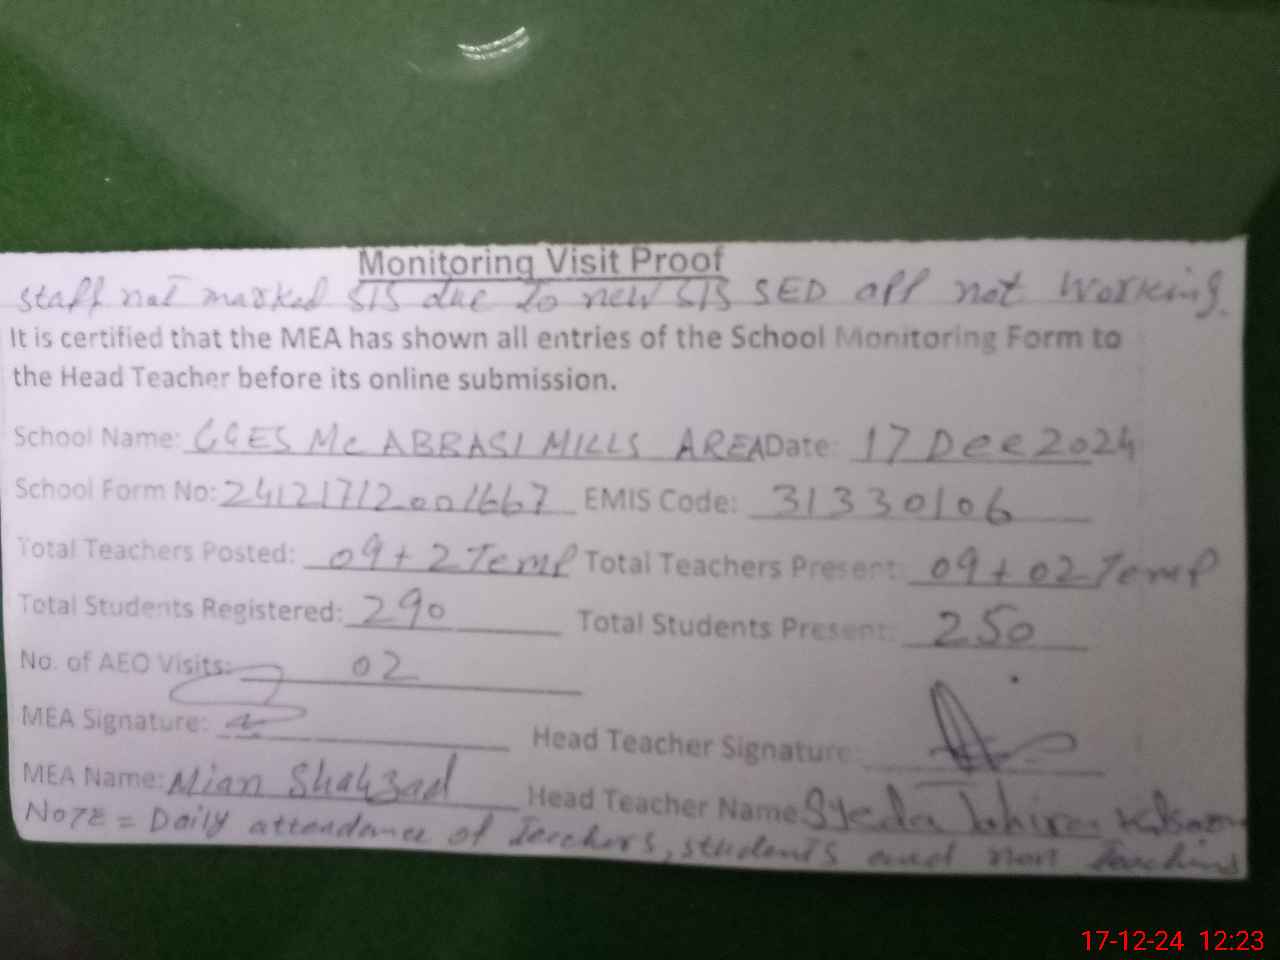 Monitoring Visit Proof
staff not marked SIS due to new SIS SED app not working.
It is certified that the MEA has shown all entries of the School Monitoring Form to
the Head Teacher before its online submission.
School Name: GGES Mc ABBASI MILLS AREA Date: 17 Dec 2024
School Form No: 24121712001667 EMIS Code: 31330106
Total Teachers Posted: 09+2 Temp Total Teachers Present: 09+02 Temp
Total Students Registered: 290 Total Students Present: 250
No. of AEO Visits: 02
MEA Signature: Head Teacher Signature:
MEA Name: Mian Shahzad Head Teacher Name: Syeda Tahira
NOTE = Daily attendance of Teachers, students and non Teaching
17-12-24 12:23